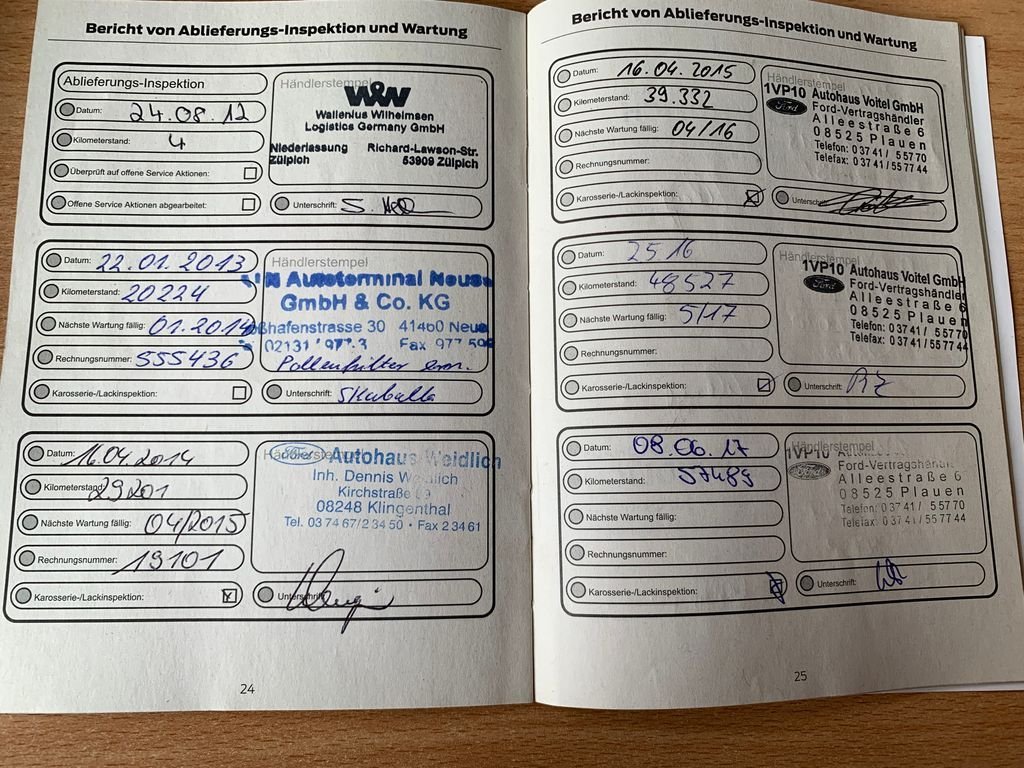 Bericht von Ablieferungs-Inspektion und Wartung
Ablieferungs-Inspektion
Datum: 24.08.12
Kilometerstand: 4
Überprüft auf offene Service Aktionen:
Offene Service Aktionen abgearbeitet:
Händlerstempel
W&W
Wallenius Wilhelmsen
Logistics Germany GmbH
Niederlassung Richard-Lawson-Str.
Zülpich 53909 Zülpich
Unterschrift:
Datum: 22.01.2013
Kilometerstand: 20224
Nächste Wartung fällig: 01.2014
Rechnungsnummer: 555436
Karosserie-/Lackinspektion:
Händlerstempel
Autoterminal Neuss
GmbH & Co. KG
30 41460
02131 Fax 977
Pollenfilter ern.
Unterschrift: Skuballa
Datum: 16.04.2014
Kilometerstand: 29201
Nächste Wartung fällig: 04/2015
Rechnungsnummer: 19101
Karosserie-/Lackinspektion: X
Händlerstempel
Ford Autohaus Weidlich
Inh. Dennis Weidlich
Kirchstraße
08248 Klingenthal
Tel. 03 74 67/2 34 50 • Fax 2 34 61
Unterschrift:
24
Bericht von Ablieferungs-Inspektion und Wartung
Datum: 16.04.2015
Kilometerstand: 39.332
Nächste Wartung fällig: 04/16
Rechnungsnummer:
Karosserie-/Lackinspektion: X
Händlerstempel
1VP10 Autohaus Voitel GmbH
Ford Ford-Vertragshändler
Alleestraße 6
08525 Plauen
Telefon: 0 37 41 / 5 57 70
Telefax: 0 37 41 / 55 77 44
Unterschrift:
Datum: 25 16
Kilometerstand: 48527
Nächste Wartung fällig: 5/17
Rechnungsnummer:
Karosserie-/Lackinspektion:
Händlerstempel
1VP10 Autohaus Voitel GmbH
Ford Ford-Vertragshändler
Alleestraße 6
08525 Plauen
Telefon: 0 37 41 / 5 57 70
Telefax: 0 37 41 / 55 77 44
Unterschrift:
Datum: 08.06.17
Kilometerstand: 57489
Nächste Wartung fällig:
Rechnungsnummer:
Karosserie-/Lackinspektion:
Händlerstempel
1VP10
Ford Ford-Vertragshändler
Alleestraße 6
08525 Plauen
Telefon: 0 37 41 / 5 57 70
Telefax: 0 37 41 / 55 77 44
Unterschrift:
25